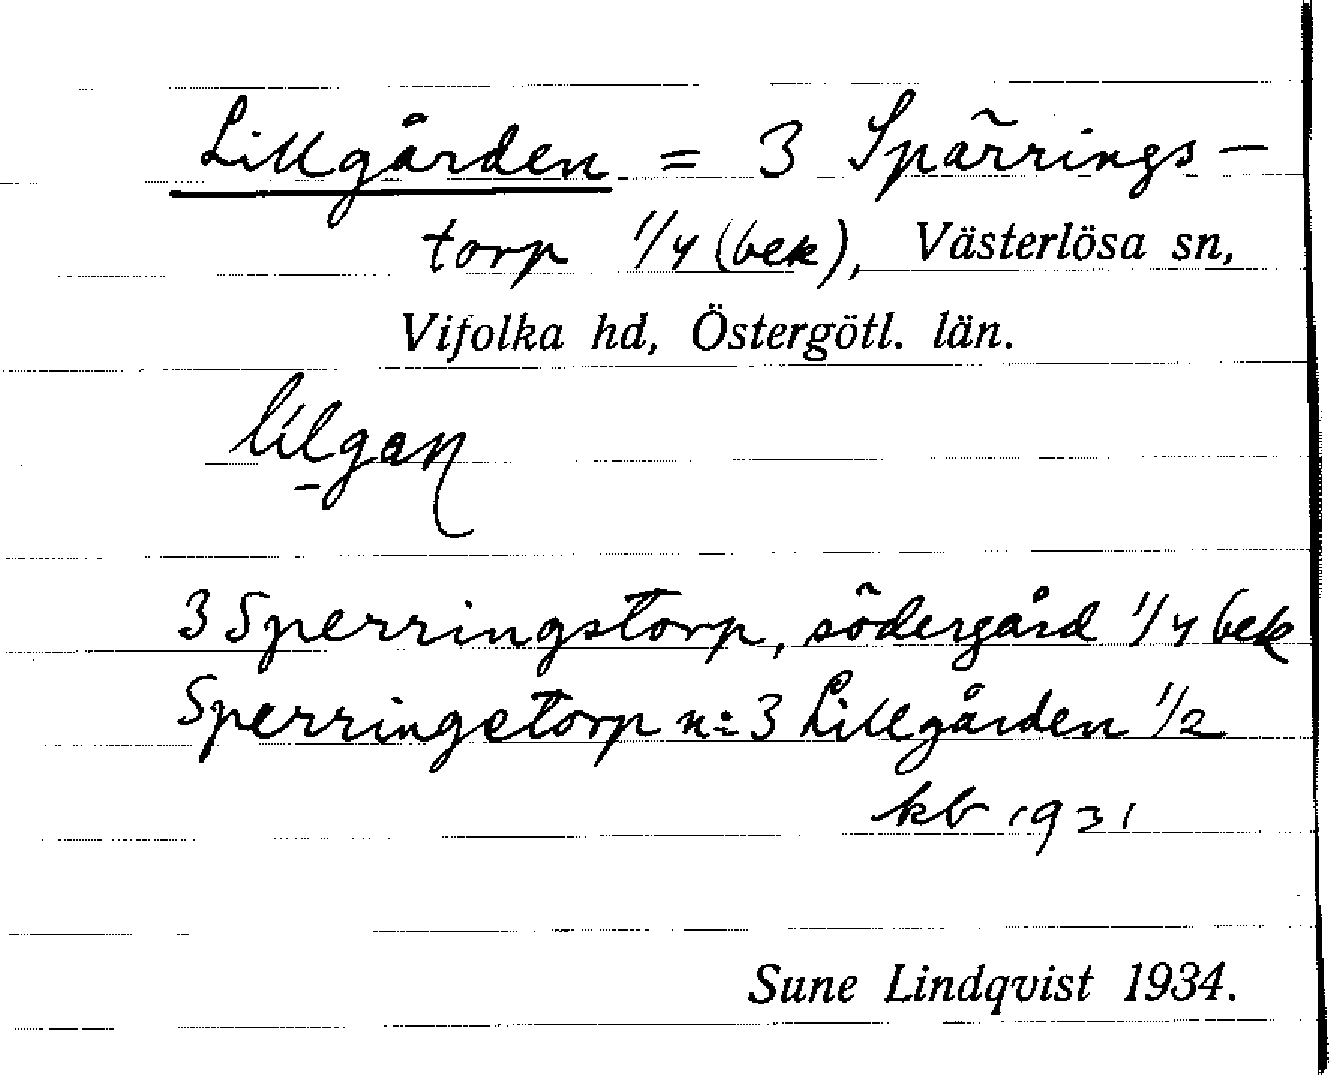 Lillgården = 3 Spärrings-
torp 1/4 (bek), Västerlösa sn,
Vifolka hd, Östergötl. län.
3 Sperringstorp, södergård 1/4 bek
Sperringstorp n:3 Lillgården 1/2
kb 1931
Sune Lindqvist 1934.